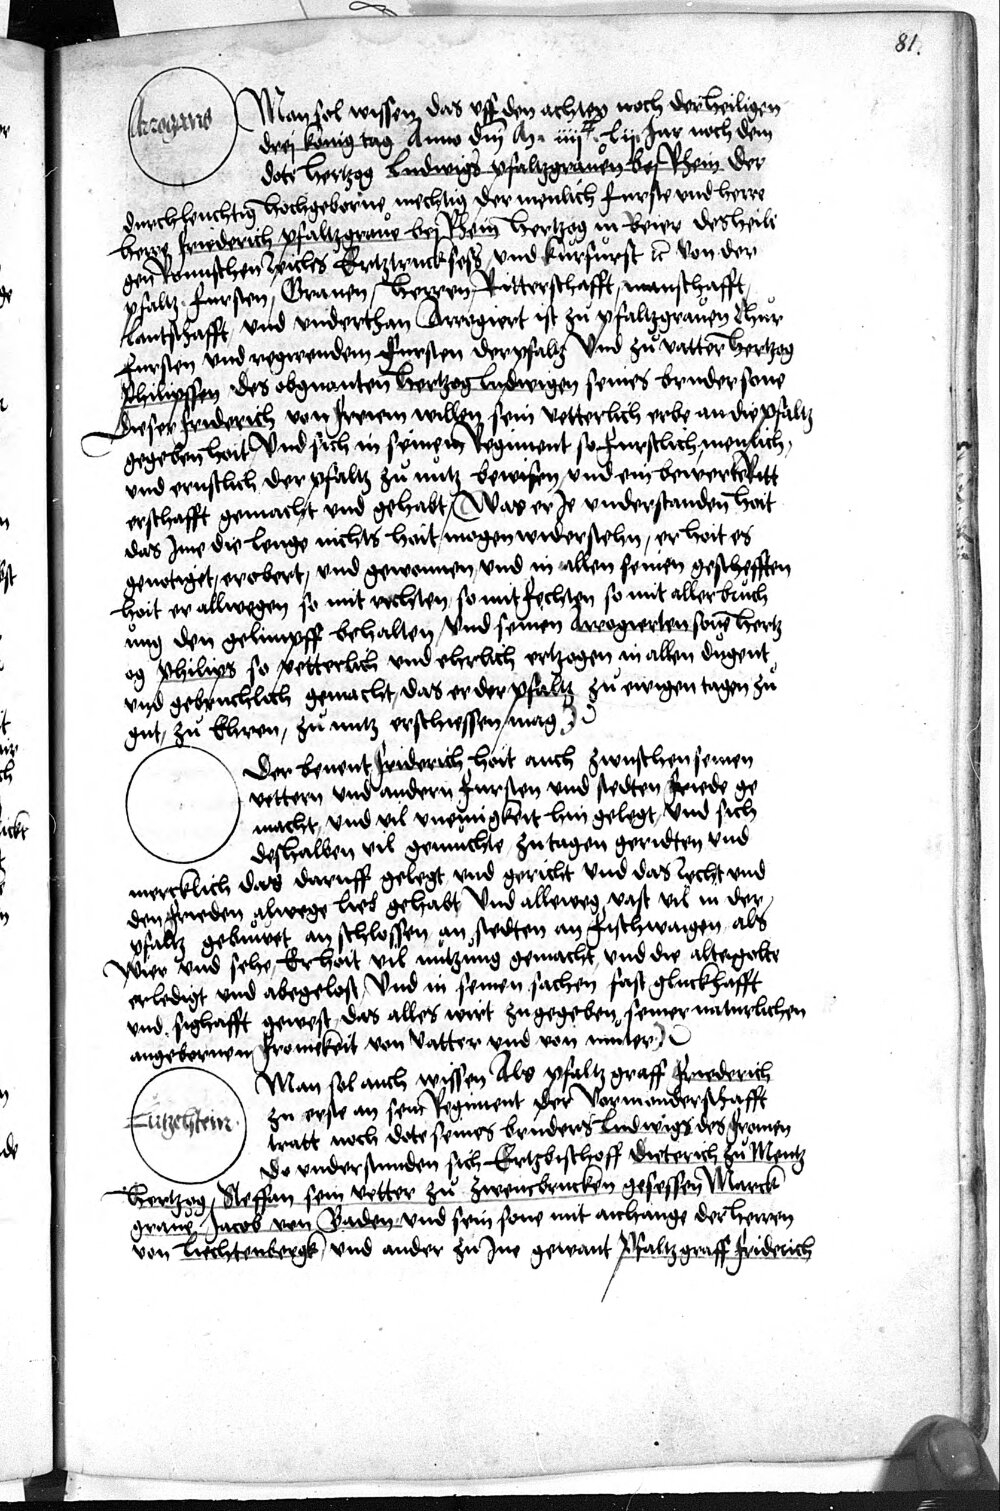 81.
Arrogans
Man sol wissen das vff den achten noch der heiligen
drej konig tag Anno dnj M. iiijc. lij. Jar noch dem
dote hertzog Ludwigs pfaltzgrauen bej Rhein Der
durchleuchtig hochgeborne mechtig der menlich furste vnd herre
herre friederich pfaltzgraue bej Rhein hertzog in Beier des heili
gen Romischen Reichs Ertztruckseß vnd kurfurst von der
pfaltz fursten, Grauen, herren, Ritterschafft, manschafft,
lantschafft vnd vnderthan Arrogiert ist zu pfaltzgrauen Chur
fursten vnd regirendem fursten der pfaltz Vnd zu vatter hertzog
Philipssen des obgnanten hertzog Ludwigen seines bruder sone
Dieser friderich von freiem willen sein vetterlich erbe an die pfaltz
gegeben hoit Vnd sich in seinem Regiment so furstlich, menlich,
vnd ernstlich der pfaltz zu nutz bewisen, vnd ein bewerte Ritt
erschafft gemacht vnd gehabt, Was er Je vnderstanden hoit
das Ime die lenge nichts hoit mogen widerstehn, er hoit es
genotiget, erobert, vnd gewonnen, vnd in allen seinen geschefften
hoit er allwegen so mit rechten, so mit fechten so mit aller bruch
ung den gelimpff behalten, Vnd seinen Arrogierten sone hertz
og philips so vetterlich vnd ehrlich ertzogen in allen dugent
vnd gebruchlich gemacht, das er der pfaltz zu ewigen tagen zu
gut, zu Ehren, zu nutz erschiessen mag
Der benent friderich hoit auch zwuschen seinen
vettern vnd andern fursten vnd stedten friede ge
macht, vnd vil vneinigkeit hin gelegt, Vnd sich
deßhalben vil gemuchte zu tagen geridten vnd
mercklich das daruff gelegt vnd gericht vnd das Recht vnd
den frieden alwege lieb gehabt Vnd alleweg vast vil in der
pfaltz gebuwet an schlossen, an stedten an fischwaigen, als
Wier vnd sehe, Er hoit vil nutzung gemacht, vnd die alter golte
erledigt vnd abegelost, Vnd in seinen sachen fast gluckhafft
vnd sighafft gewest, das alles wirt zugegeben seiner naturlichen
angebornen fromekeit von Vatter vnd von muter
Lutzelstein.
Man sol auch wissen Als pfaltzgraff friederich
zu erste an sein Regiment der Vormonderschafft
tratt noch dote seines bruders Ludwigs des fromen
Do vnderstunden sich Ertzbischoff Dieterich zu Mentz
hertzog Steffan sein vetter zu zweinbrucken gesessen Marck
graue Jacob von Baden vnd sein sone mit anhange der herren
von Liechtenbergk vnd ander zu Ime gewant Pfaltzgraff friderich